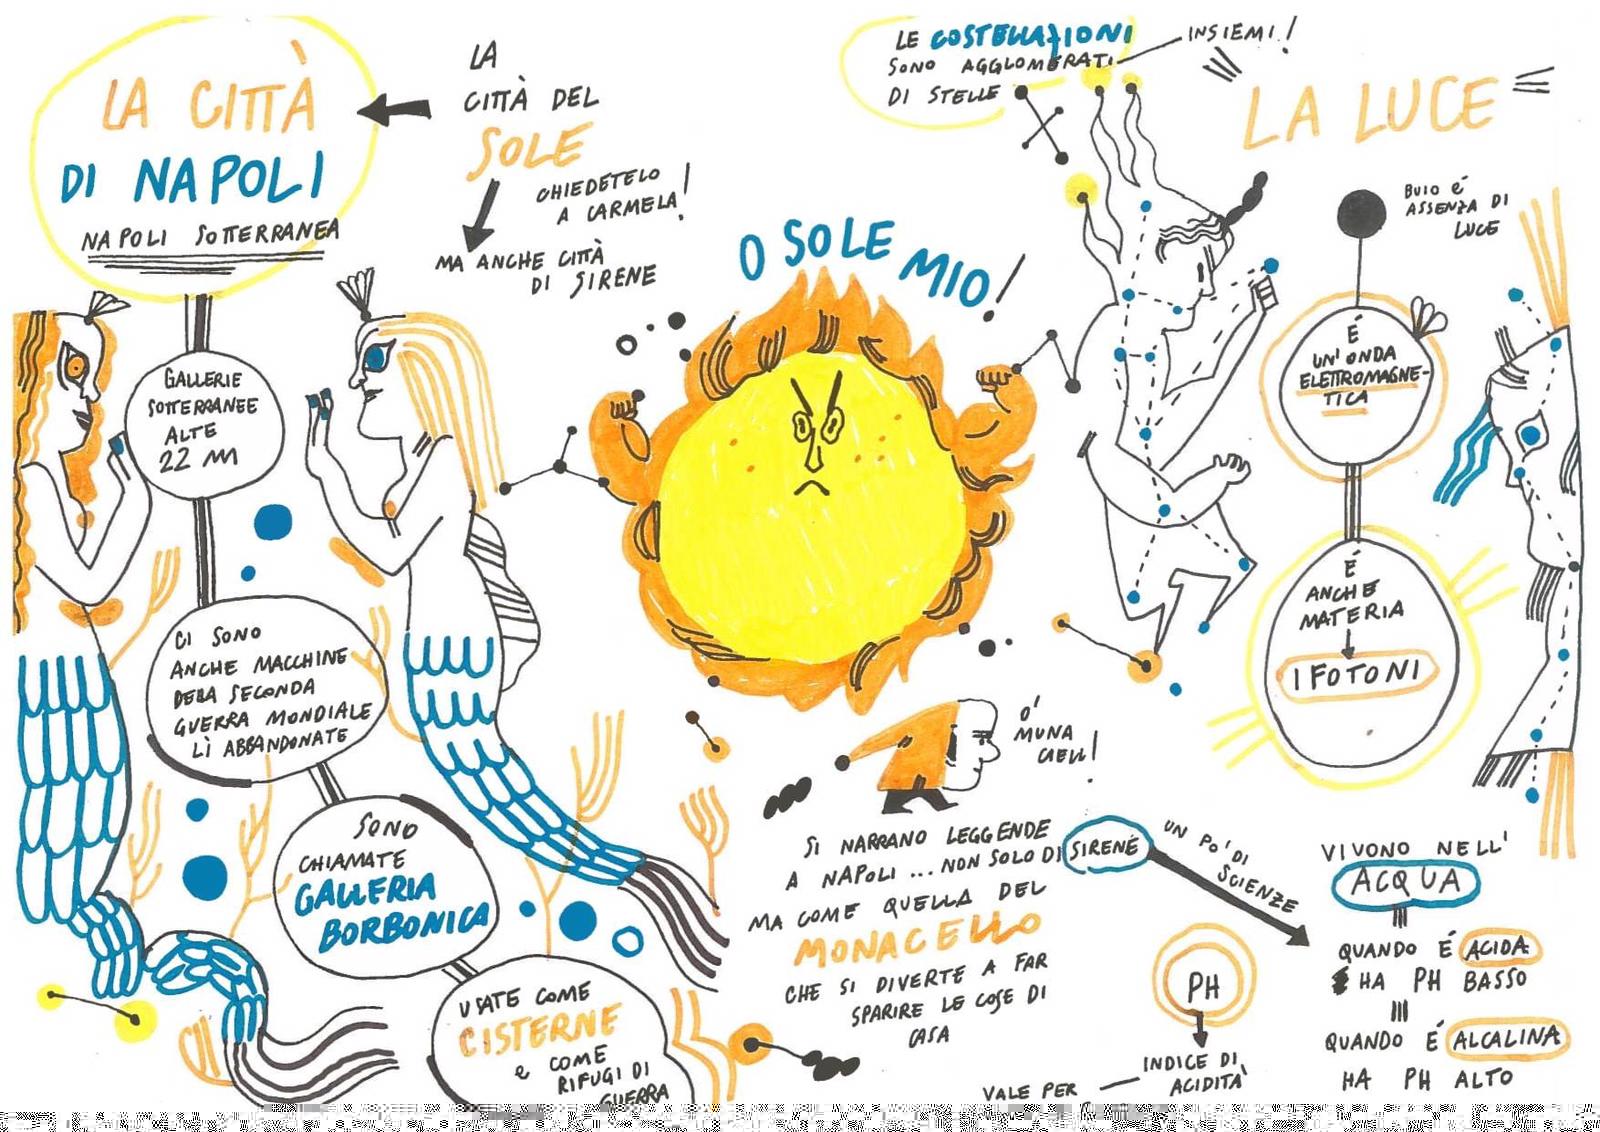 LA CITTÀ
DI NAPOLI
NAPOLI SOTTERRANEA
LA
CITTÀ DEL
SOLE
CHIEDETELO
A CARMELA!
MA ANCHE CITTÀ
DI SIRENE
GALLERIE
SOTTERRANEE
ALTE
22 M
CI SONO
ANCHE MACCHINE
DELLA SECONDA
GUERRA MONDIALE
LÌ ABBANDONATE
SONO
CHIAMATE
GALLERIA
BORBONICA
USATE COME
CISTERNE
e COME
RIFUGI DI
GUERRA
O SOLE MIO!
O' MUNA
CIELL!
SI NARRANO LEGGENDE
A NAPOLI ... NON SOLO DI SIRENE
MA COME QUELLA DEL
MONACELLO
CHE SI DIVERTE A FAR
SPARIRE LE COSE DI
CASA
LE COSTELLAZIONI
SONO AGGLOMERATI
DI STELLE
INSIEMI!
LA LUCE
BUIO É
ASSENZA DI
LUCE
É
UN'ONDA
ELETTROMAGNE-
TICA
É
ANCHE
MATERIA
I FOTONI
UN PO' DI
SCIENZE
VIVONO NELL'
ACQUA
QUANDO É ACIDA
HA PH BASSO
QUANDO É ALCALINA
HA PH ALTO
PH
INDICE DI
ACIDITÀ
VALE PER